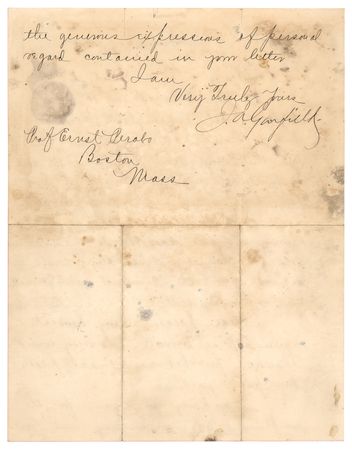 the generous expressions of personal
regard contained in your letter
I am
Very Truly Yours
J. A. Garfield.
Prof Ernst Perabo
Boston
Mass